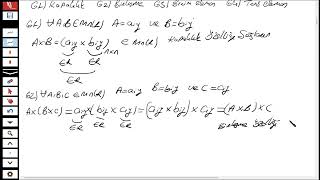 G1) Kapalılık G2) Birleşme G3) Birim eleman G4) Ters Eleman
G1) ∀A,B∈Mn(R) A=aij ve B=bij
AxB=(aij x bij)nxn ∈ Mn(R) Kapalılık özelliği Sağlanır
∈R ∈R
G2) ∀A,B,C∈Mn(R) A=aij B=bij ve C=cij
Ax(BxC)=aijx(bij x cij)=(aij x bij)x cij=(AxB)xC
∈R ∈R ∈R Birleşme özelliği